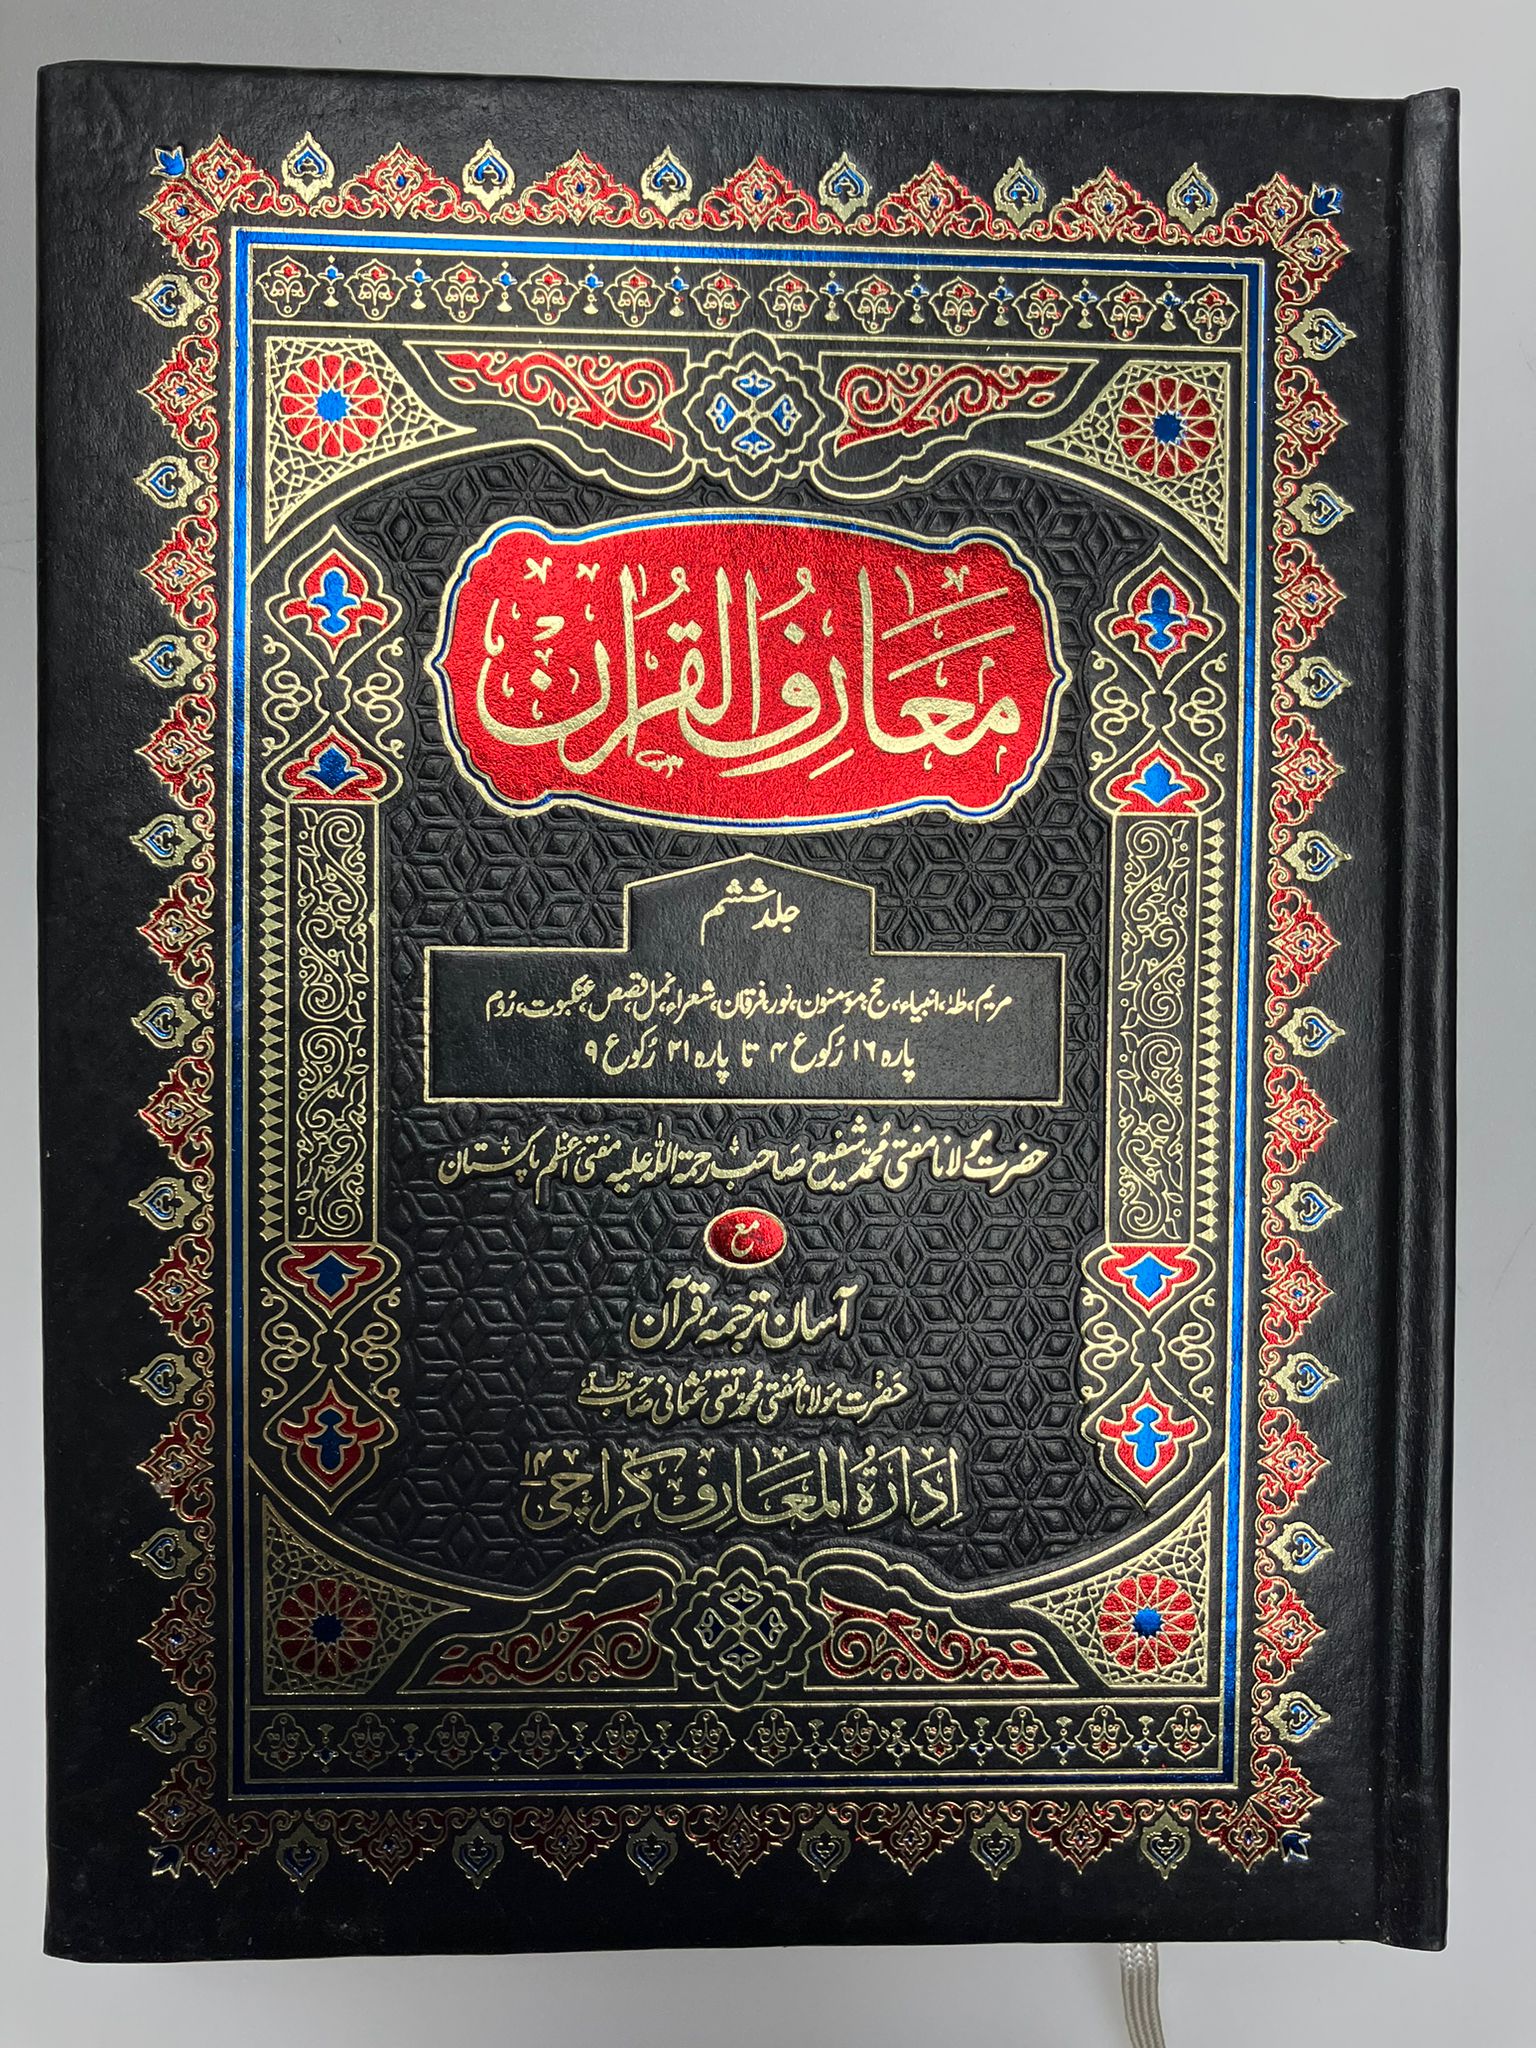 معارف القرآن
جلد ششم
مریم، طٰہٰ، انبیاء، حج، مؤمنون، نور، فرقان، شعراء، نمل، قصص، عنکبوت، رُوم
پارہ ۱۶ رُکوع ۴ تا پارہ ۲۱ رُکوع ۹
حضرت مولانا مفتی محمد شفیع صاحب رحمۃ اللہ علیہ مفتی اعظم پاکستان
مع
آسان ترجمۂ قرآن
حضرت مولانا مفتی محمد تقی عثمانی صاحب
ادارۃ المعارف کراچی ۱۴